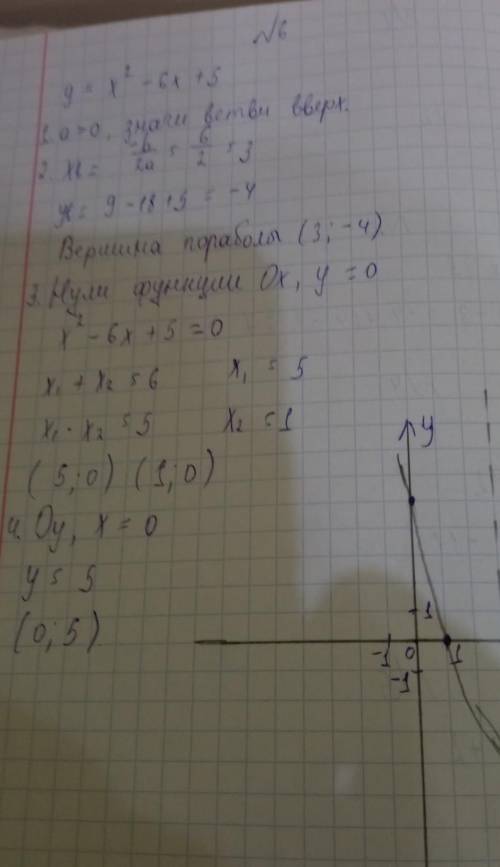 №6
y = x² - 6x + 5
1. a > 0, значи ветви вверх.
2. xв = -b/2a = 6/2 = 3
yв = 9 - 18 + 5 = -4
Вершина пораболы (3; -4)
3. Нули функции Ox, y = 0
x² - 6x + 5 = 0
x₁ + x₂ = 6 x₁ = 5
x₁ · x₂ = 5 x₂ = 1
(5; 0) (1; 0)
4. Oy, x = 0
y = 5
(0; 5)
y
1
-1 0 1
-1